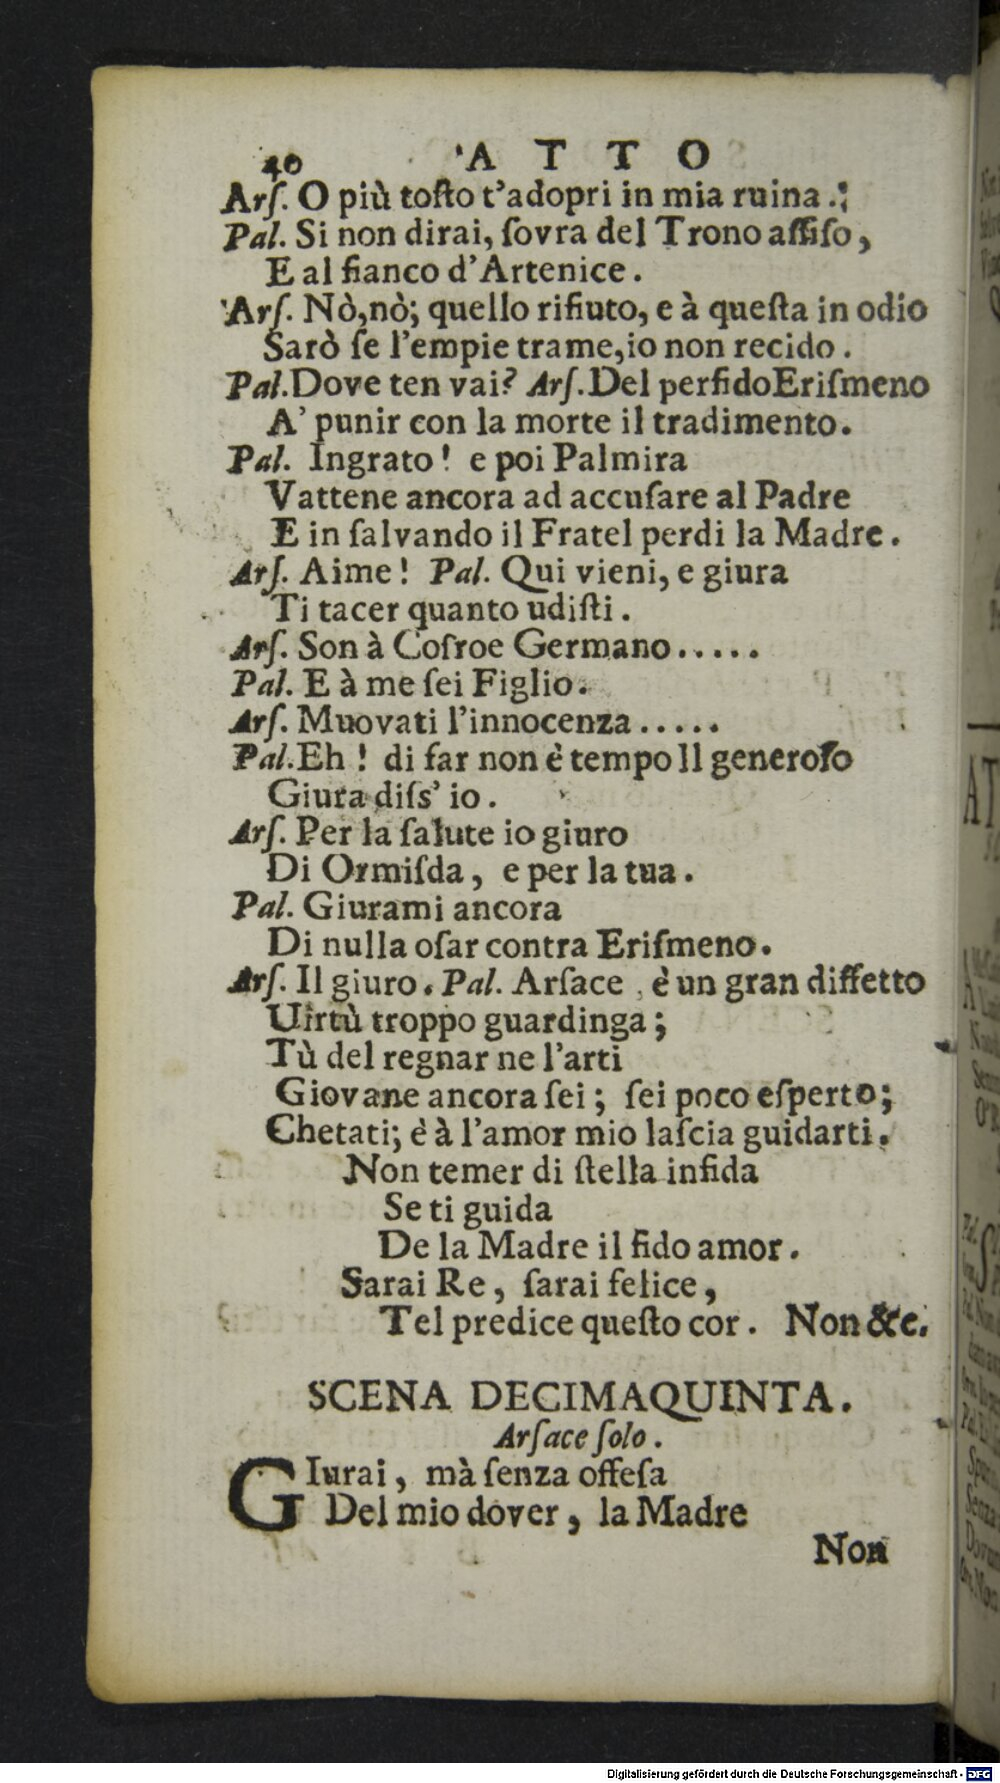 40 'A T T O
Arſ. O più toſto t'adopri in mia ruina.;
Pal. Si non dirai, ſovra del Trono aſſiſo,
E al fianco d'Artenice.
Arſ. Nò,nò; quello rifiuto, e à queſta in odio
Sarò ſe l'empie trame,io non recido.
Pal.Dove ten vai? Arſ.Del perfidoEriſmeno
A' punir con la morte il tradimento.
Pal. Ingrato! e poi Palmira
Vattene ancora ad accuſare al Padre
E in ſalvando il Fratel perdi la Madre.
Arſ. Aime! Pal. Qui vieni, e giura
Ti tacer quanto udiſti.
Arſ. Son à Coſroe Germano.....
Pal. E à me ſei Figlio.
Arſ. Muovati l'innocenza.....
Pal.Eh! di far non è tempo Il generoſo
Giura diſs' io.
Arſ. Per la ſalute io giuro
Di Ormiſda, e per la tua.
Pal. Giurami ancora
Di nulla oſar contra Eriſmeno.
Arſ. Il giuro. Pal. Arſace, è un gran diffetto
Uirtù troppo guardinga;
Tù del regnar ne l'arti
Giovane ancora ſei; ſei poco eſperto;
Chetati; é à l'amor mio laſcia guidarti.
Non temer di ſtella infida
Se ti guida
De la Madre il fido amor.
Sarai Re, ſarai felice,
Tel predice queſto cor. Non &c.
SCENA DECIMAQUINTA.
Arſace ſolo.
GIurai, mà ſenza offeſa
Del mio dover, la Madre
Non
Digitalisierung gefördert durch die Deutsche Forschungsgemeinschaft - DFG